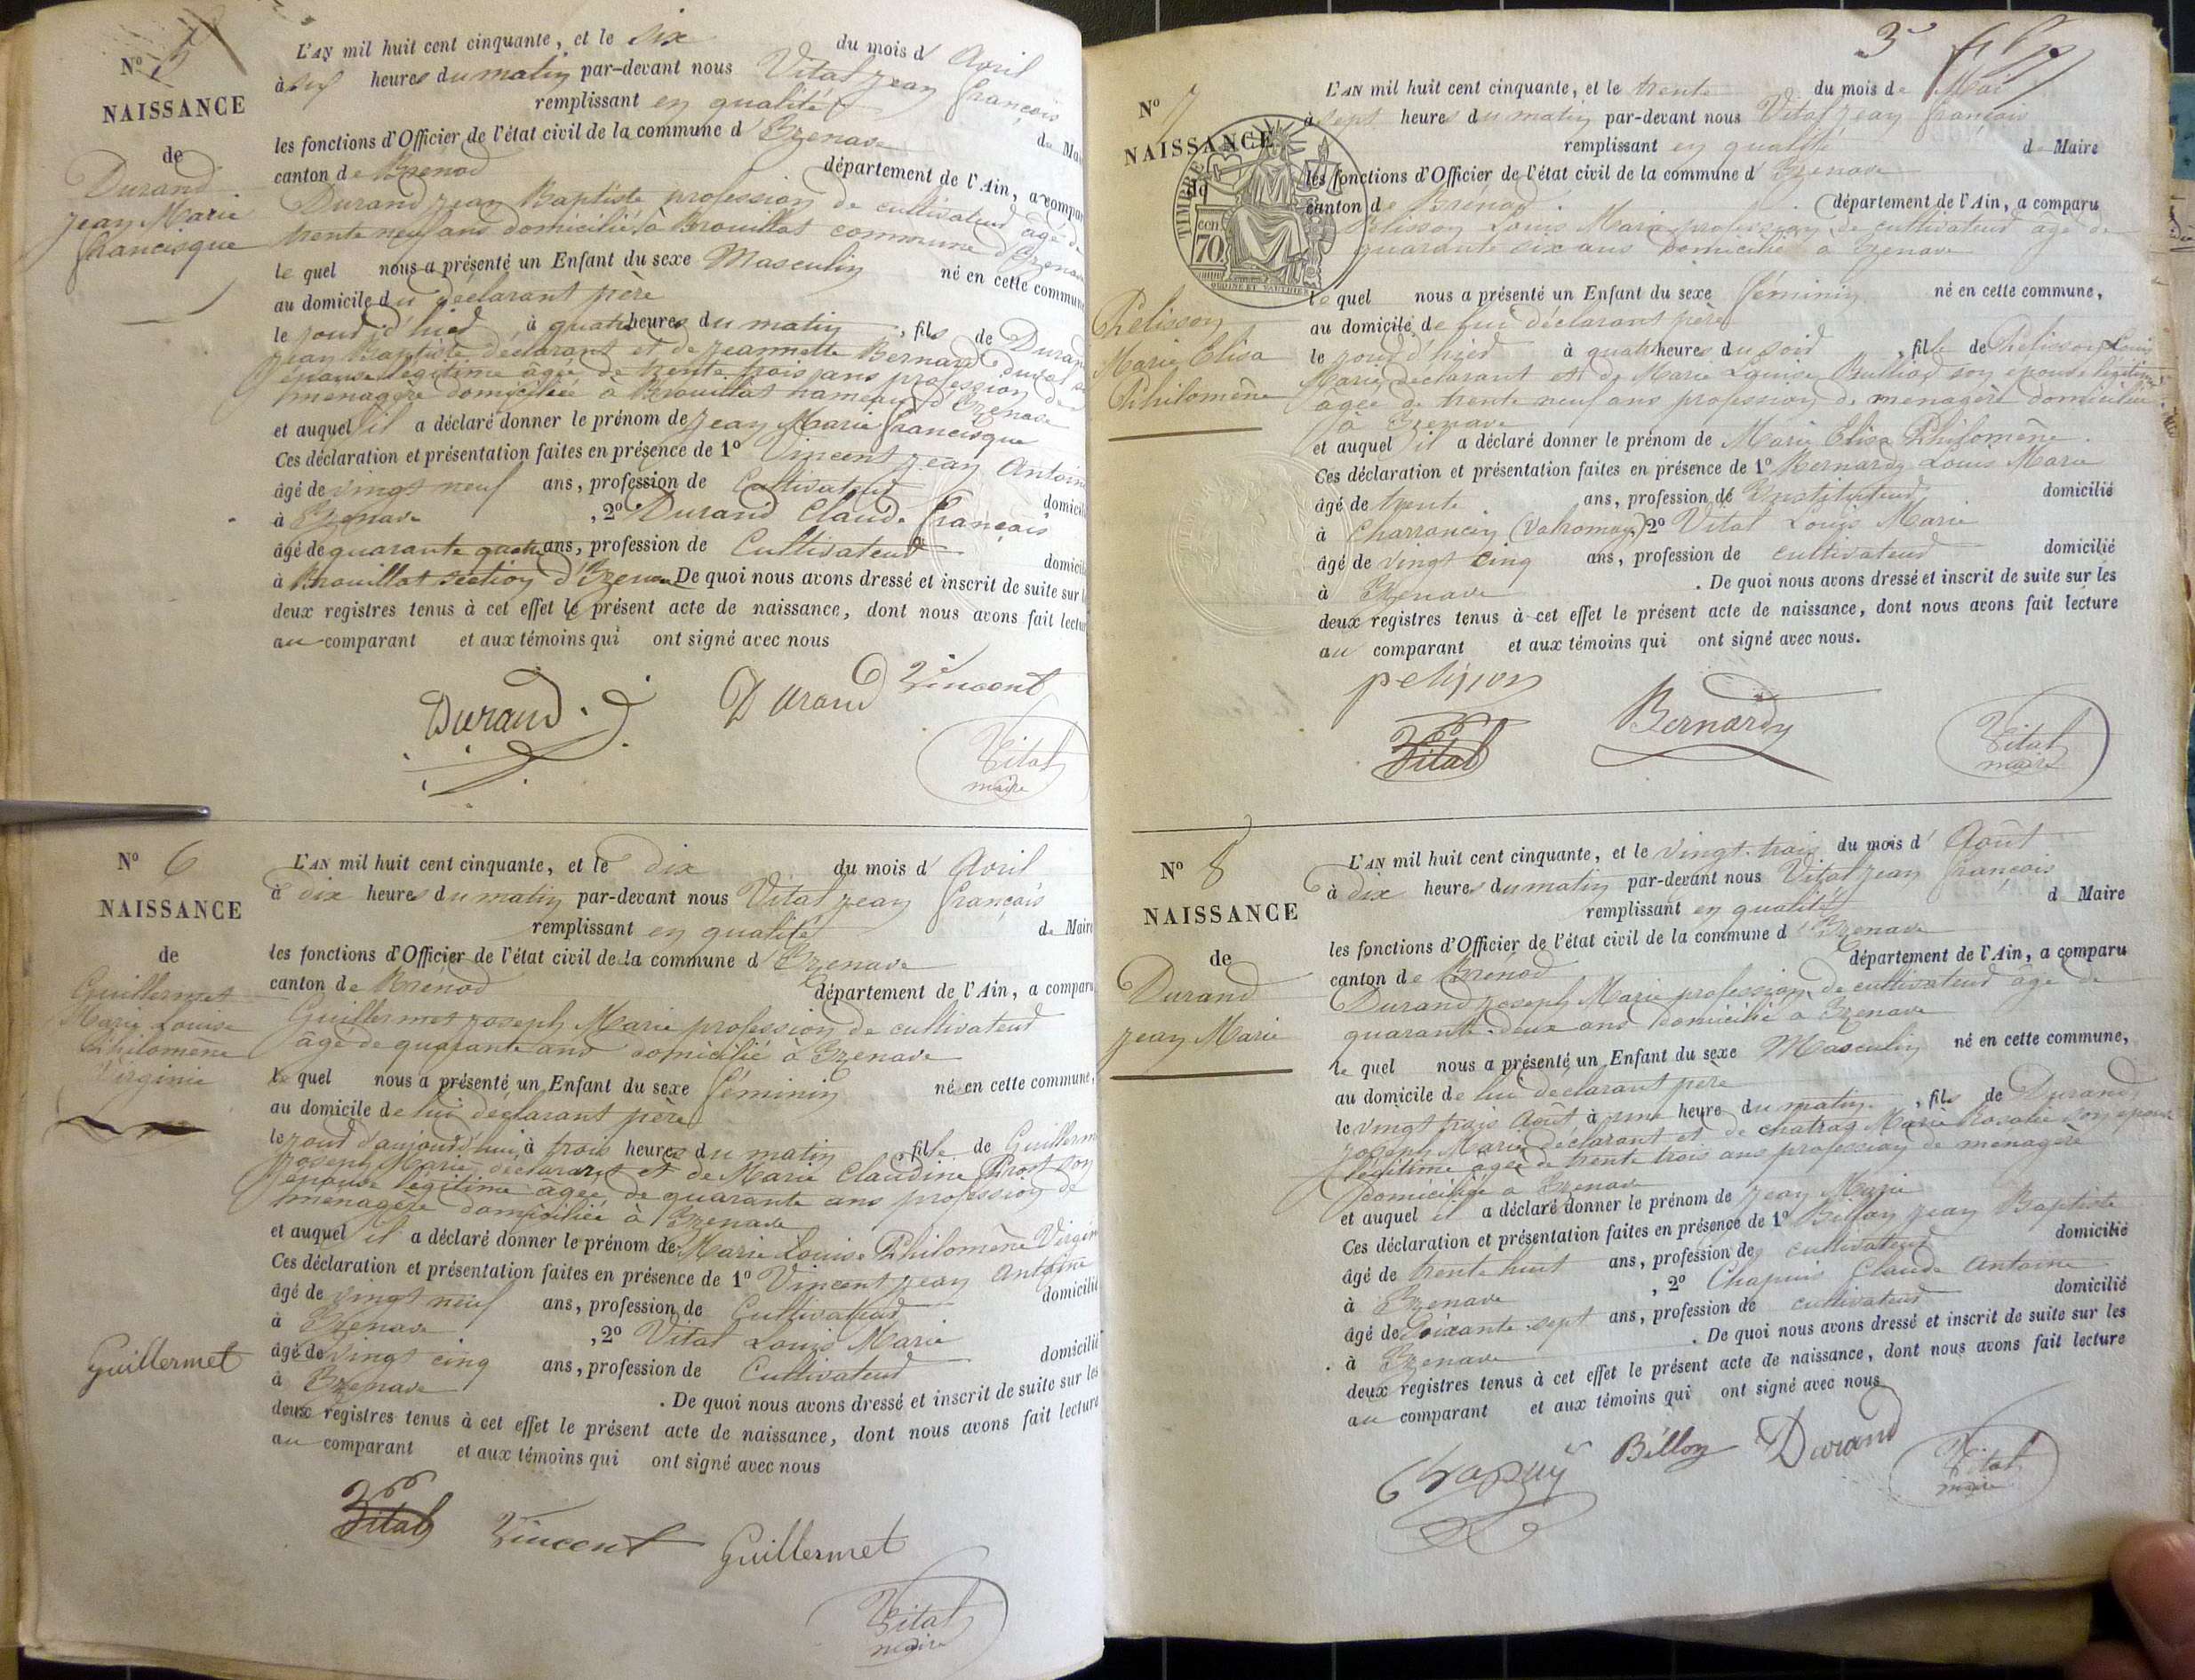 N° 5
NAISSANCE
de
Durand
Jean Marie
francisque
L'AN mil huit cent cinquante, et le six du mois d' Avril
à heures du matin par-devant nous Vital Jean françois
remplissant en qualité de Mai
les fonctions d'Officier de l'état civil de la commune d' Izenave
canton de Brénod département de l'Ain, a compar
Durand Jean Baptiste profession de cultivateur âgé de
trente neuf ans domicilié à Brouillat commune d'Izenave
le quel nous a présenté un Enfant du sexe Masculin né en cette commune
au domicile du déclarant père
le jour d'hier, à quatre heures du matin, fils de Durand
Jean Baptiste déclarant et de Jeannette Bernard
épouse légitime âgée de trente trois ans profession de
ménagère domiciliée à Brouillat hameau d'Izenave
et auquel il a déclaré donner le prénom de Jean Marie francisque
Ces déclaration et présentation faites en présence de 1° Vincent Jean Antoine
âgé de vingt neuf ans, profession de Cultivateur domicili
à Izenave, 2° Durand Claude françois
âgé de quarante quatre ans, profession de Cultivateur domicili
à Brouillat section d'Izenave De quoi nous avons dressé et inscrit de suite sur l
deux registres tenus à cet effet le présent acte de naissance, dont nous avons fait lectur
au comparant et aux témoins qui ont signé avec nous
Durand Durand Vincent
Vital
maire
N° 6
NAISSANCE
de
Guillermet
Marie Louise
Philomène
Virginie
Guillermet
L'AN mil huit cent cinquante, et le dix du mois d' Avril
à dix heures du matin par-devant nous Vital Jean françois
remplissant en qualité de Maire
les fonctions d'Officier de l'état civil de la commune d' Izenave
canton de Brénod département de l'Ain, a comparu
Guillermet Joseph Marie profession de cultivateur
âgé de quarante ans domicilié à Izenave
le quel nous a présenté un Enfant du sexe féminin né en cette commune,
au domicile de lui déclarant père
le jour d'aujourd'hui, à trois heures du matin fille de Guillerm
Joseph Marie, déclarant et de Marie Claudine son
épouse légitime âgée de quarante ans profession de
ménagère domiciliée à Izenave
et auquel il a déclaré donner le prénom de Marie Louise Philomène Virgin
Ces déclaration et présentation faites en présence de 1° Vincent Jean Antoine
âgé de vingt neuf ans, profession de Cultivateur domicilié
à Izenave, 2° Vital Louis Marie
âgé de vingt cinq ans, profession de Cultivateur domicilié
à Izenave. De quoi nous avons dressé et inscrit de suite sur les
deux registres tenus à cet effet le présent acte de naissance, dont nous avons fait lecture
au comparant et aux témoins qui ont signé avec nous
Vital Vincent Guillermet
Vital
maire
3
N° 7
NAISSANCE
de
TIMBRE
cen
70
Pelisson
Marie Elisa
Philomène
L'AN mil huit cent cinquante, et le trente du mois de Mai
à sept heures du matin par-devant nous Vital Jean françois
remplissant en qualité de Maire
les fonctions d'Officier de l'état civil de la commune d' Izenave
canton de Brénod département de l'Ain, a comparu
Pelisson Louis Marie profession de cultivateur âgé de
quarante six ans domicilié à Izenave
le quel nous a présenté un Enfant du sexe féminin né en cette commune,
au domicile de lui déclarant père
le jour d'hier à quatre heures du soir, fille de Pelisson Louis
Marie, déclarant et de Marie Louise son épouse légitime
âgée de trente neuf ans profession de ménagère domiciliée
à Izenave
et auquel il a déclaré donner le prénom de Marie Elisa Philomène
Ces déclaration et présentation faites en présence de 1° Bernardy Louis Marie
âgé de trente ans, profession de Instituteur domicilié
à Charrancin (Valromay) 2° Vital Louis Marie
âgé de vingt cinq ans, profession de cultivateur domicilié
à Izenave. De quoi nous avons dressé et inscrit de suite sur les
deux registres tenus à cet effet le présent acte de naissance, dont nous avons fait lecture
au comparant et aux témoins qui ont signé avec nous.
pelisson
Vital Bernardy
Vital
maire
N° 8
NAISSANCE
de
Durand
Jean Marie
L'AN mil huit cent cinquante, et le vingt-trois du mois d' Août
à dix heures du matin par-devant nous Vital Jean françois
remplissant en qualité d Maire
les fonctions d'Officier de l'état civil de la commune d' Izenave
canton de Brénod département de l'Ain, a comparu
Durand Joseph Marie profession de cultivateur âgé de
quarante-deux ans domicilié à Izenave
le quel nous a présenté un Enfant du sexe Masculin né en cette commune,
au domicile de lui déclarant père
le vingt trois Août à une heure du matin, fils de Durand
Joseph Marie déclarant et de chatrag Marie Rosalie son épouse
légitime âgée de trente trois ans profession de ménagère
domiciliée à Izenave
et auquel il a déclaré donner le prénom de Jean Marie
Ces déclaration et présentation faites en présence de 1° Billon Jean Baptiste
âgé de trente huit ans, profession de cultivateur domicilié
à Izenave, 2° Chapuis Claude Antoine
âgé de Soixante-sept ans, profession de cultivateur domicilié
à Izenave. De quoi nous avons dressé et inscrit de suite sur les
deux registres tenus à cet effet le présent acte de naissance, dont nous avons fait lecture
au comparant et aux témoins qui ont signé avec nous
Chapuy Billon Durand
Vital
maire